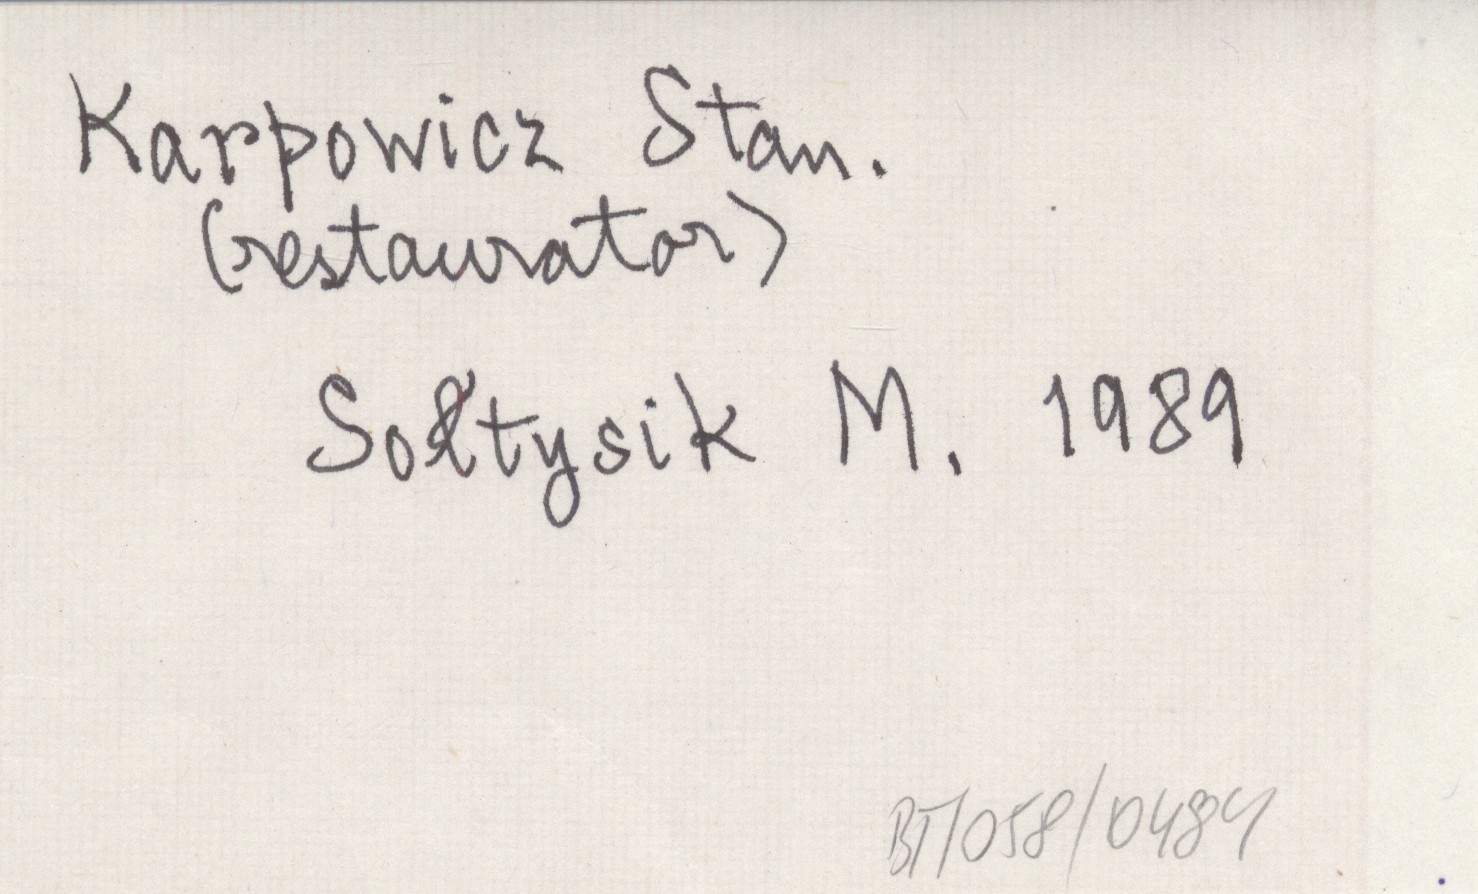 Karpowicz Stan.
(restaurator)
Sołtysik M. 1989
BT/058/0484